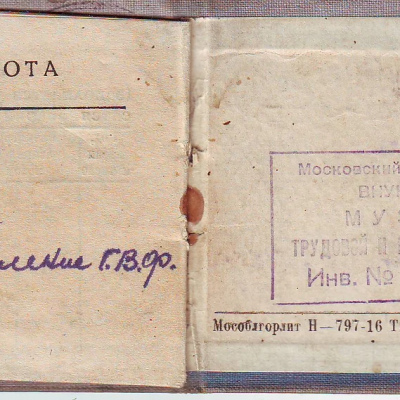 ОТА
Г.В.Ф.
Московский
ВНУК
МУЗ
ТРУДОВОЙ И
Инв. №
Мособлгорлит Н—797-16 Т